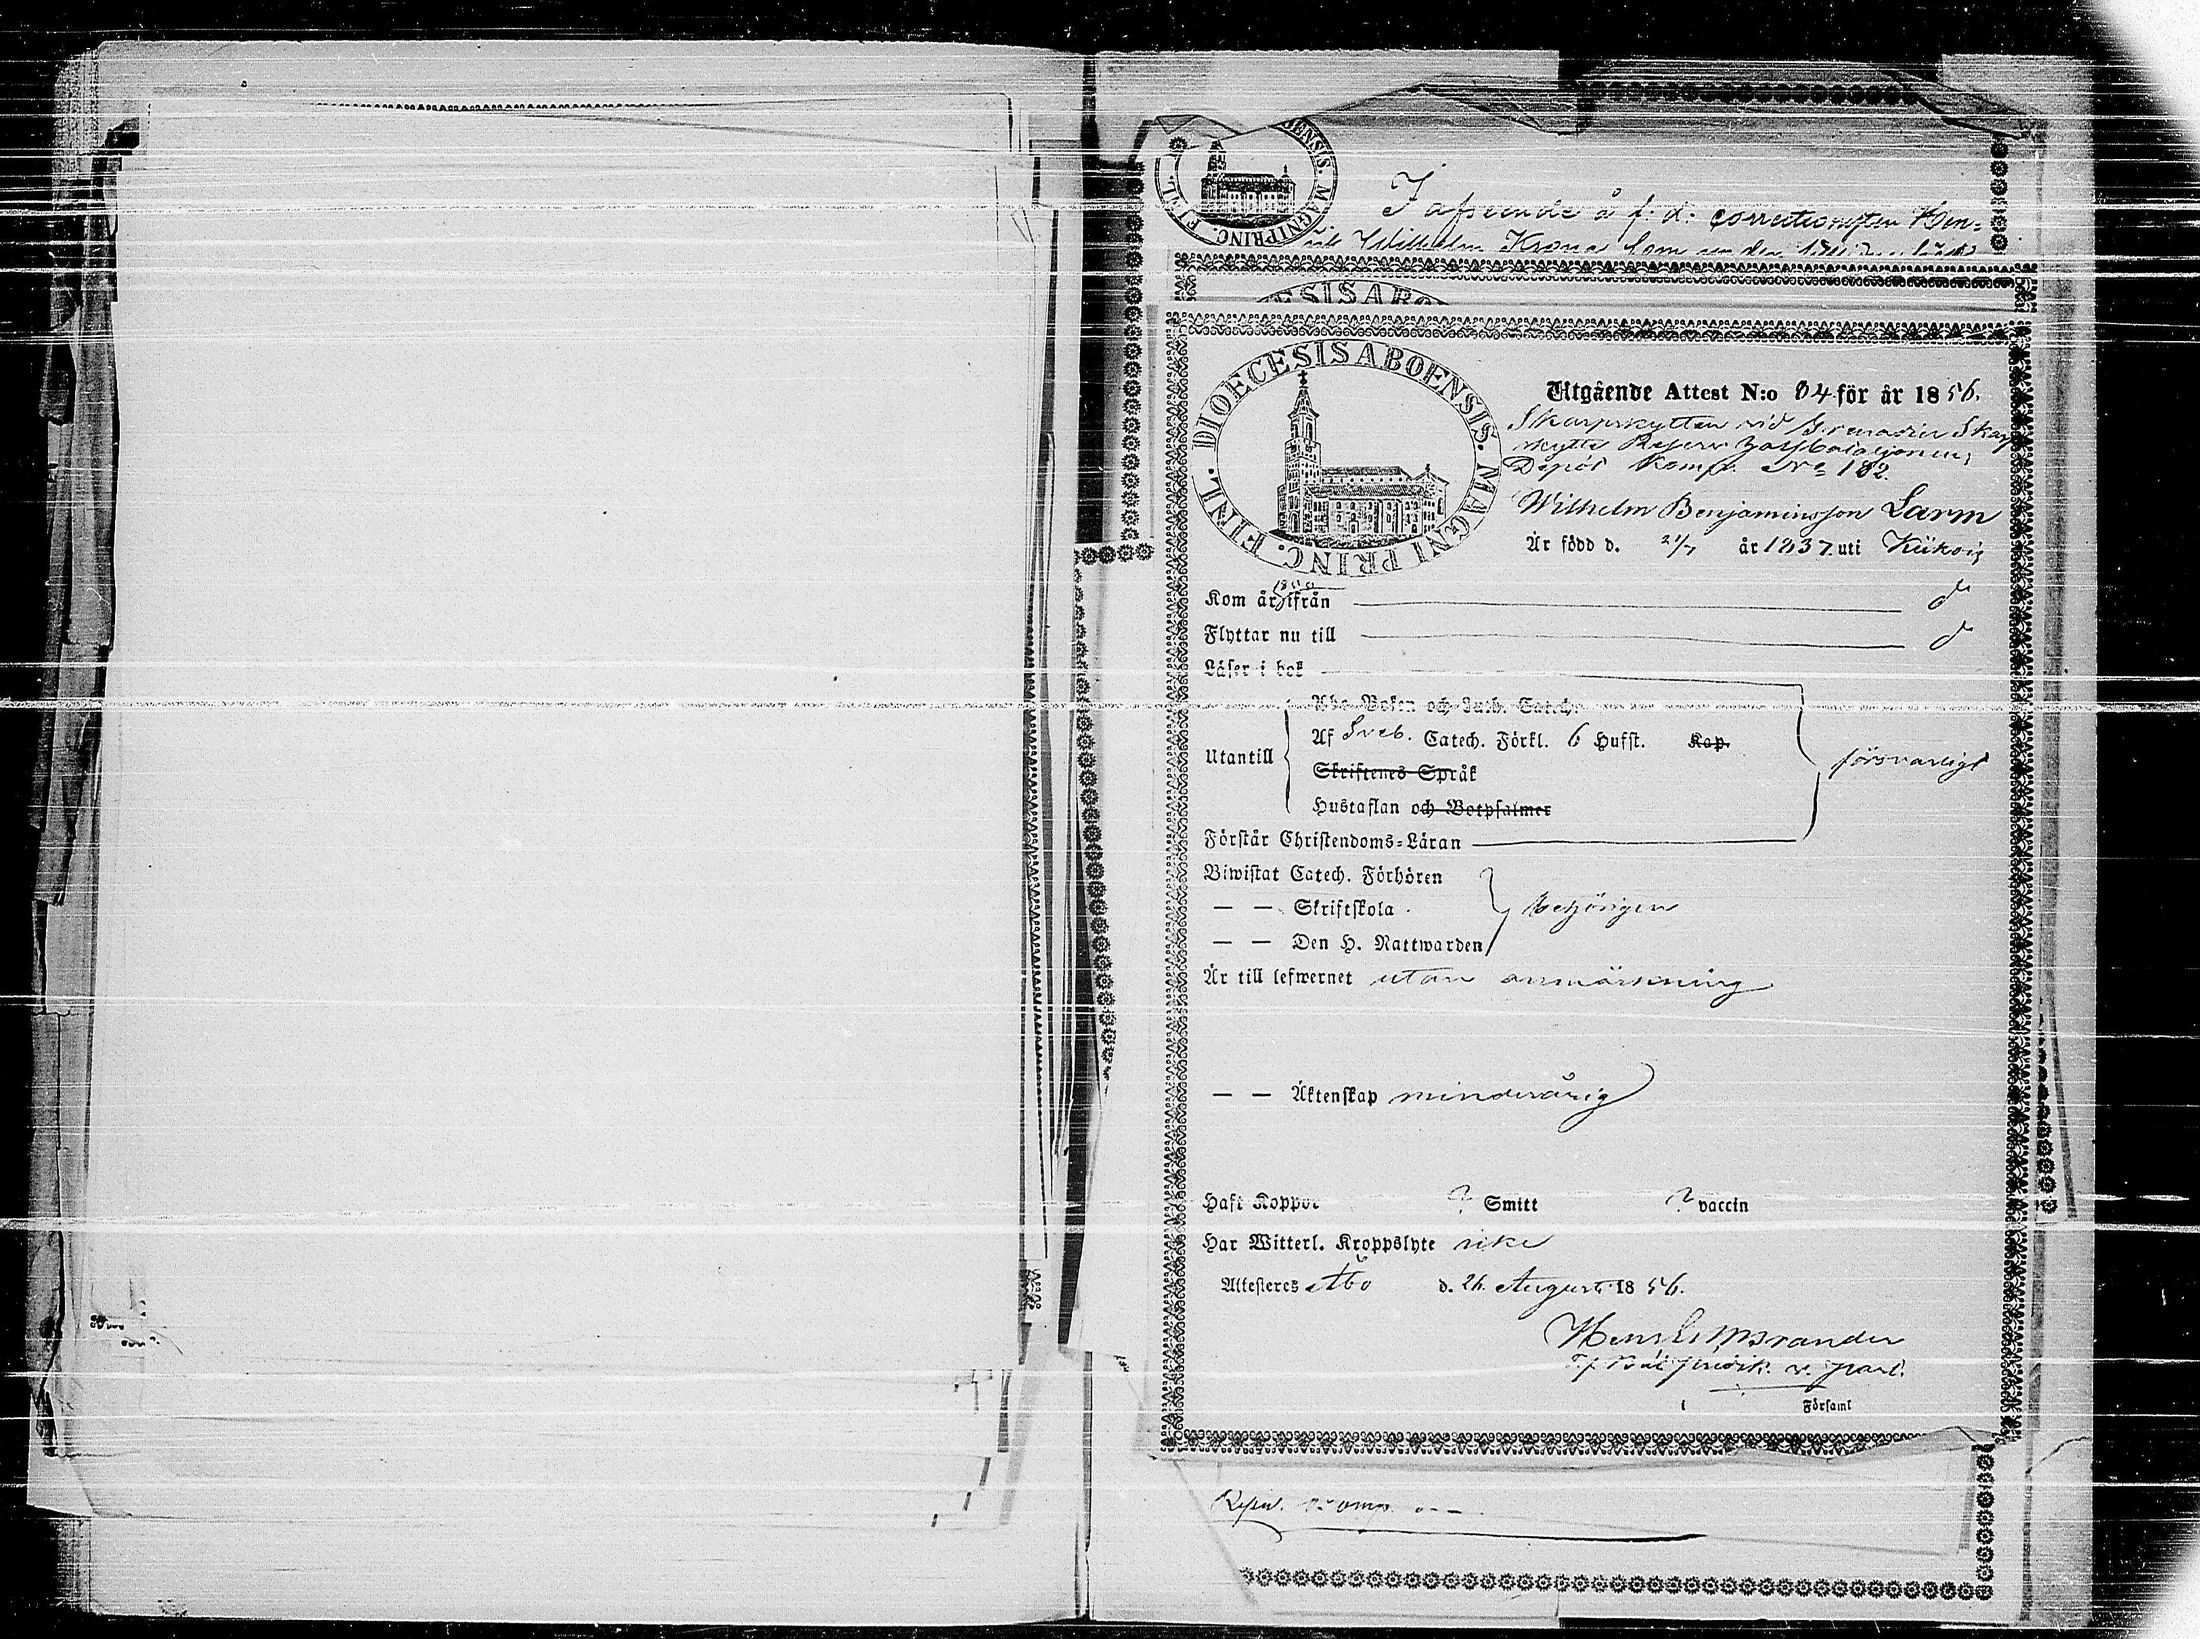 DIOECESIS ABOENSIS. MAGNI PRINC. FINL.
I afseende å f. d. correctionisten Hen-
rik Wilhelm Krona som
DIOECESIS ABOENSIS. MAGNI PRINC. FINL.
Utgående Attest N:o 84 för år 1856.
Skarpskytten vid Grenadier Skarp
skytte Bataljonens,
Depôt Komp. No 182.
Wilhelm Benjaminsson Larm
Är född d. 21/7 år 1837 uti Kiikois
Kom år ifrån
Flyttar nu till
Läser i bok
Abc-Boken och Luth. Catech.
Utantill
Af Sveb. Catech. Förkl. 6 Hufst. Kap.
Skriftenes Språk
Hustaflan och Botpsalmer
försvarligt
Förstår Christendoms-Läran
Biwistat Catech. Förhören
— — Skriftskola
behörigen
— — Den H. Nattwarden
Är till lefwernet utan anmärkning
— — Äktenskap minderårig
Haft Koppor ? Smitt ? vaccin
Har Witterl. Kroppslyte icke
Attesteres Åbo d. 26 August 1856.
i Församl